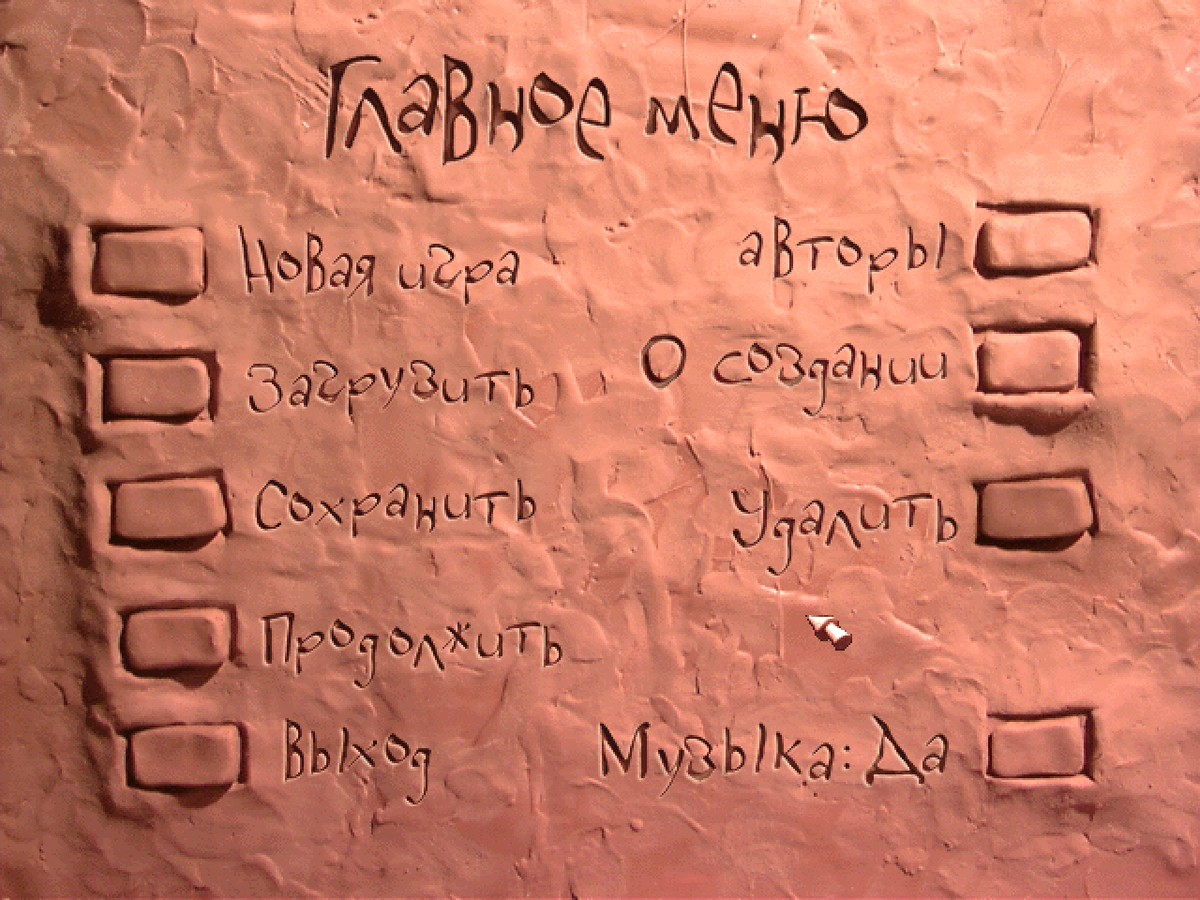 Главное меню
Новая игра
авторы
Загрузить
О создании
Сохранить
Удалить
Продолжить
Выход
Музыка: Да